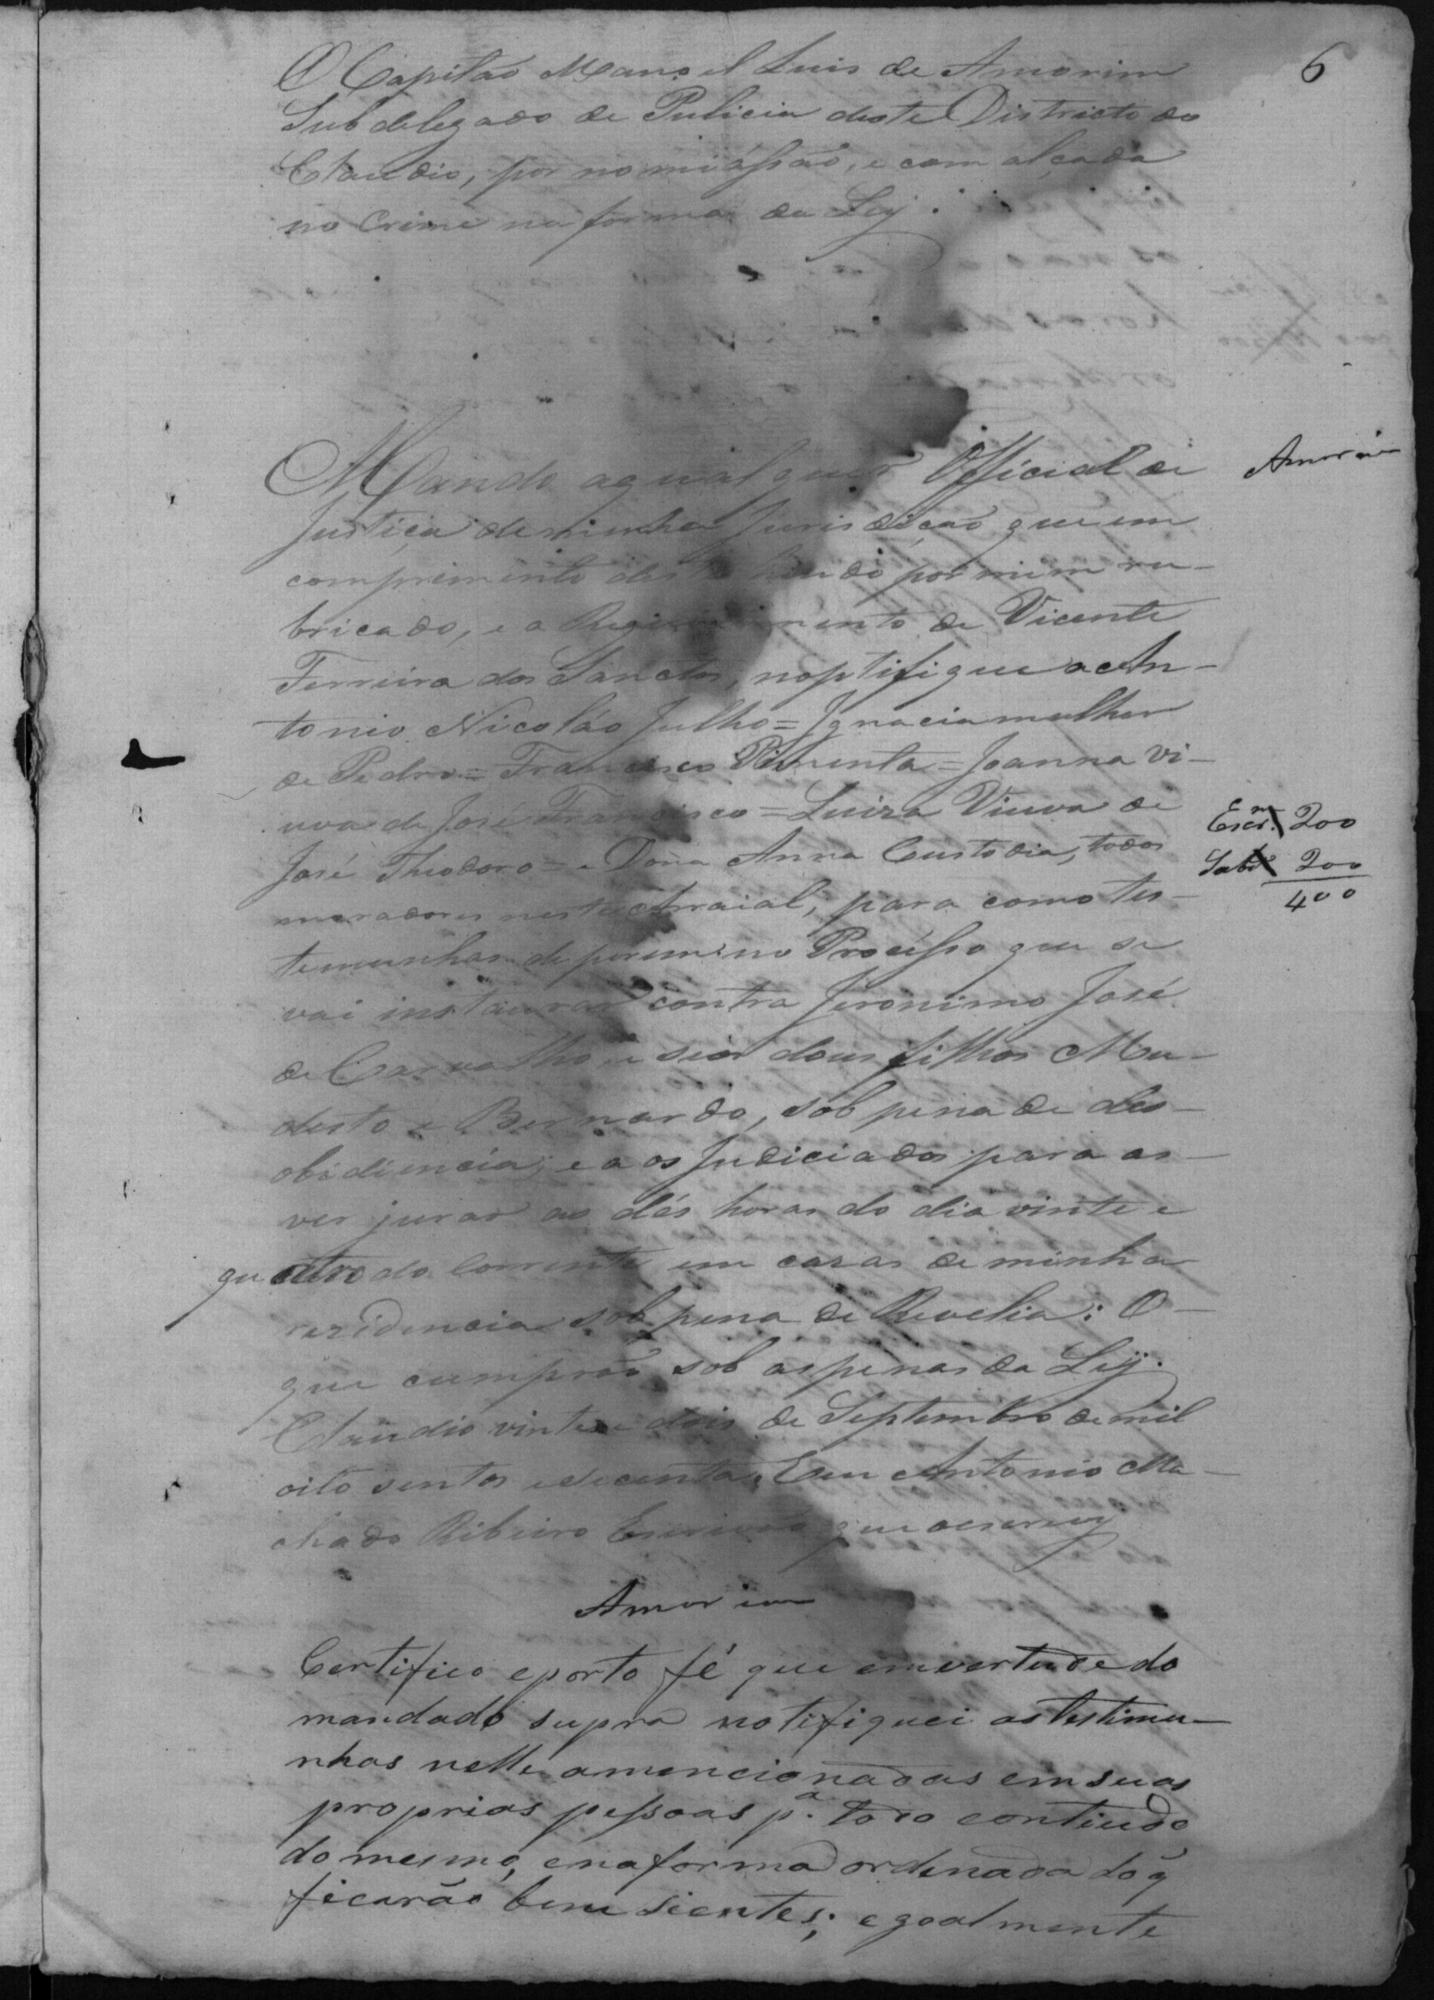 6
O Capitão Manoel Luis de Amorim
Subdelegado de Pulicia deste Districto do
Claudio, por nomiassão, e com alçada
no Crime na forma da Ley.
Amorim
Mando aqualquer Official de
Justiça de minha Jurisdição que em
comprimento deste hindo por mim ru-
bricado, e a Requirimento de Vicente
Ferreira dos Sanctos, noptifique a An-
tonio Nicoláo Julho = Ignacia mulher
de Pedro = Francisco Pimenta = Joanna vi-
uva de José Francisco = Luiza Viuva de
José Theodoro = e Dona Anna Custodia, todos
moradores neste Arraial, para como tes-
temunhas deporem no Processo que se
vai instaurar contra Jeronimo José
de Carvalho e seus dous filhos Mu-
desto e Bernardo, sob pena de des-
obidiencia; e a os Judiciados para as
ver jurar as dés horas do dia vinte e
quatro do Corrente em casas de minha
rezidencia sob pena de Revelia: O
que cumprão sob as penas da Ley.
Claudio vinte e dois de Septembro de mil
oito sentos e secenta, Eeu Antonio Ma-
chado Ribeiro Escrivão que oescrevy
Escr.m 200
Sub. 200
400
Amorim
Certifico eporto fé que emvertude do
mandado supra notifiquei astestimu-
nhas nelle amencionadas emsuas
proprias pessoas p.a todo contiudo
do mesmo, enaforma ordenada doq̃
ficarão bem sientes; egoalmente